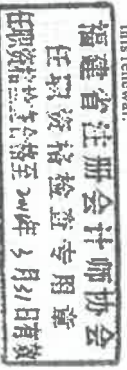 this renewal.
福建省注册会计师协会
任职资格检查专用章
任职资格 合格至 年3月31日有效